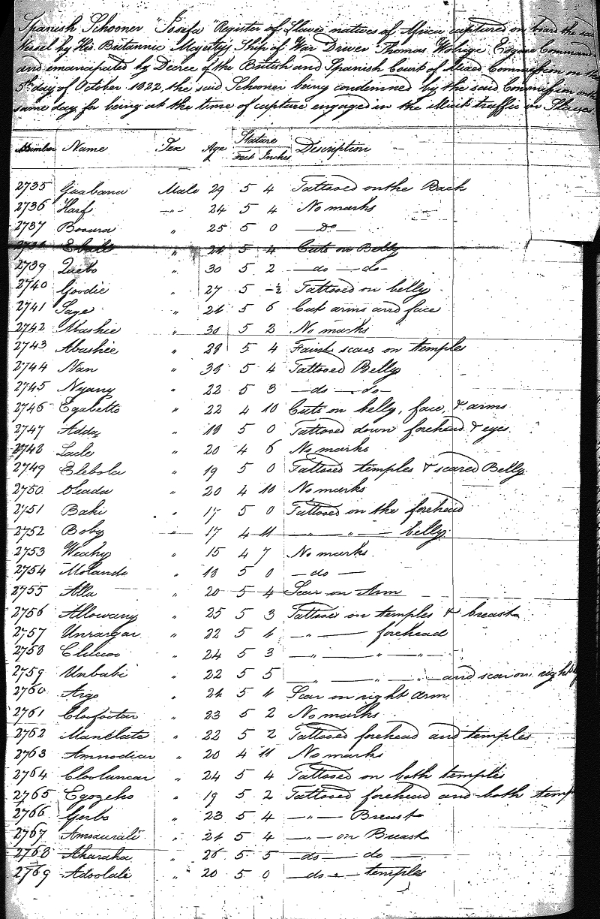 Spanish Schooner "Josefa" Register of Slaves natives of Africa captured on board the said
Vessel by His Britannic Majestys Ship of War Driver Thomas Wolrige Esquire Command
and emancipated by Decree of the British and Spanish Court of Mixed Commission on the
5th day of October 1822 the said Schooner being condemned by the said Commission on the
same day for being at the time of capture engaged in the illicit traffic in Slaves
Number Name Sex Age Stature Description
Feet Inches
2735 Gaabana Male 29 5 4 Tattooed on the Back
2736 Harf " 24 5 4 No marks
2737 Booura " 25 5 0 — Do —
2738 5 4 Cuts on Belly
2739 " 30 5 2 — do — do —
2740 Goodie " 27 5 Tattooed on belly
2741 Sage " 26 5 6 Cut arms and face
2742 Mashie " 30 5 2 No marks
2743 Abashee " 29 5 4 Faint scars on temples
2744 Nan " 30 5 4 Tattooed Belly
2745 Nyany " 22 5 3 — do — do —
2746 Egabetto " 22 4 10 Cuts on belly, face, & arms
2747 Addy " 5 0 Tattooed down forehead & eyes
2748 Lade " 20 4 6 No marks
2749 Elebola " 19 5 0 Tattooed temples & scared Belly
2750 Oleada " 20 4 10 No marks
2751 Bake " 17 5 0 Tattooed on the forehead
2752 Boby " 17 4 11 — " — " — belly
2753 Weahy " 15 4 7 No marks
2754 Molando " 5 0 — do —
2755 Alla " 20 5 4 Scar on Arm
2756 Allowany " 25 5 3 Tattoos on temples & breast
2757 Unrargar " 22 5 — " — forehead
2758 " 24 5 3 — " — " — " —
2759 Unbabi " 22 5 5 — " — " — and scar on right
2760 Argo " 5 Scar on right arm
2761 " 23 5 2 No marks
2762 Manclata " 22 5 2 Tattooed forehead and temples
2763 Amnodiar " 20 4 11 No marks
2764 " 24 5 4 Tattooed on both temples
2765 Egozeho " 19 5 2 Tattooed forehead and both temp
2766 Gerbo " 23 5 4 — " — Breast
2767 Amsaurale " 5 4 — " — on Breast
2768 Aharaka " 26 5 5 — do — do —
2769 Adoolale " 20 5 0 — do — temples